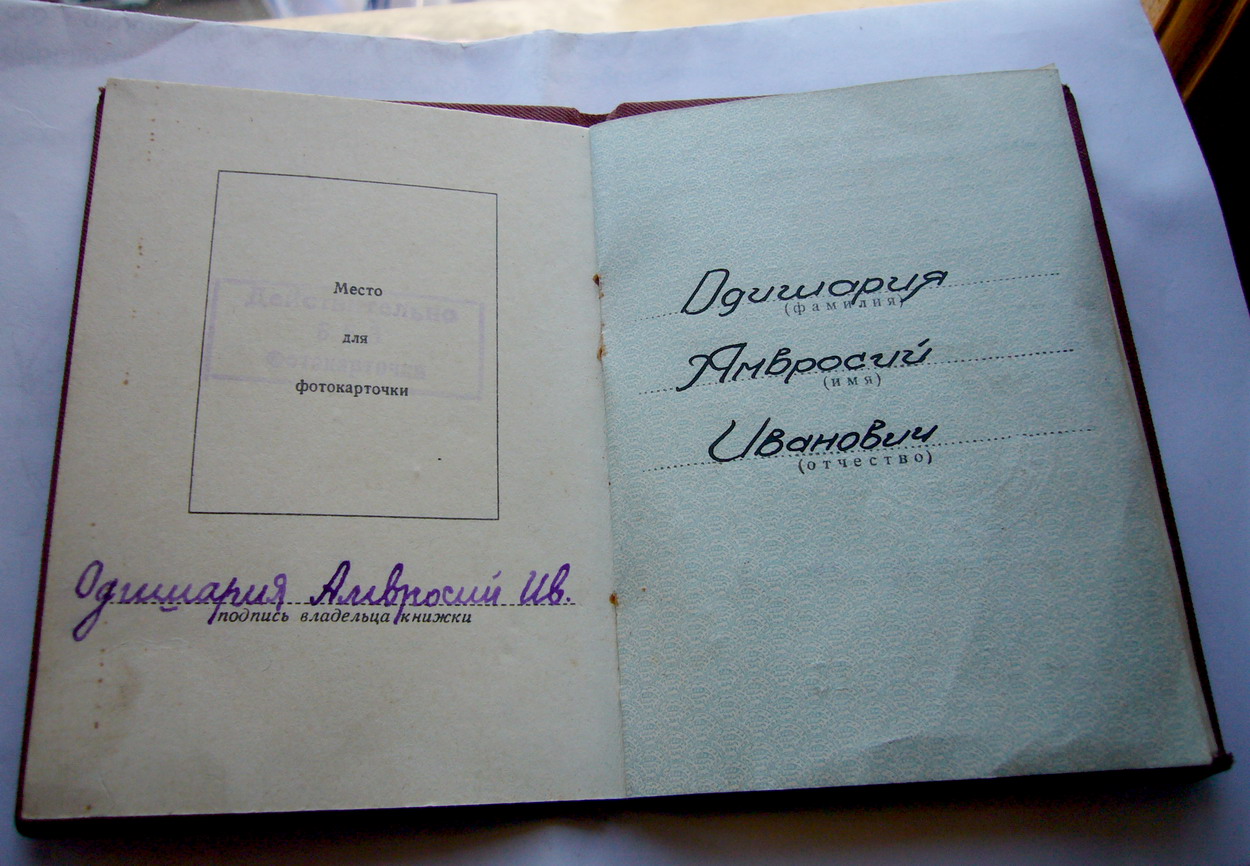 Место
для
фотокарточки
Действительно
без
фотокарточки
Одишария Амвросий Ив.
подпись владельца книжки
Одишария
(фамилия)
Амвросий
(имя)
Иванович
(отчество)